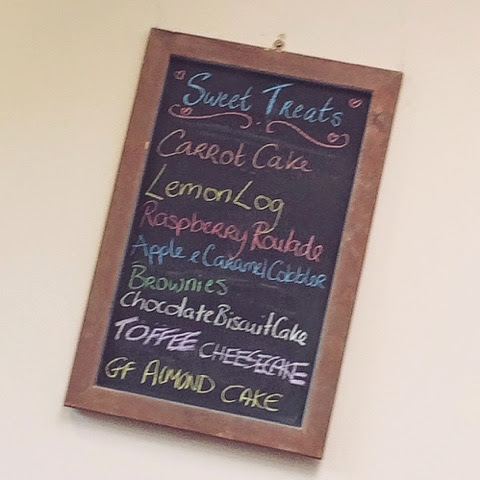 Sweet Treats
Carrot Cake
Lemon Log
Raspberry Roulade
Apple & Caramel Cobbler
Brownies
Chocolate Biscuit Cake
TOFFEE CHEESECAKE
GF ALMOND CAKE